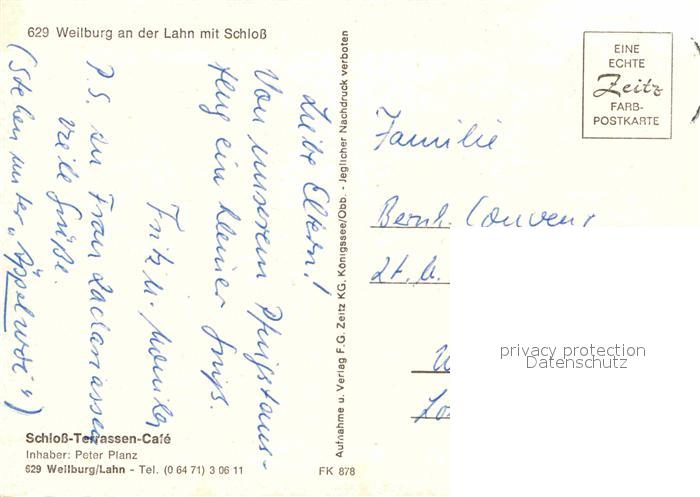 629 Weilburg an der Lahn mit Schloß
Liebe Eltern!
Von unserem Pfingstaus-
flug ein kleiner Gruß.
Fritz u. Monika
P.S. An Frau
viele Grüße.
(Stehen unter "Äppelwoi")
Schloß-Terrassen-Café
Inhaber: Peter Planz
629 Weilburg/Lahn - Tel. (0 64 71) 3 06 11
FK 878
Aufnahme u. Verlag F.G. Zeitz KG, Königssee/Obb. - Jeglicher Nachdruck verboten
EINE
ECHTE
Zeitz
FARB-
POSTKARTE
Familie
Bernh.
privacy protection
Datenschutz